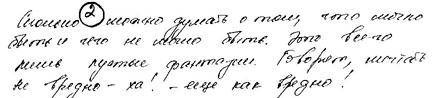 Сколько 2 можно думать о том, что могло
быть и чего не могло быть. Это всего
лишь пустые фантазии. Говорят, мечтать
не вредно – ха! – еще как вредно!